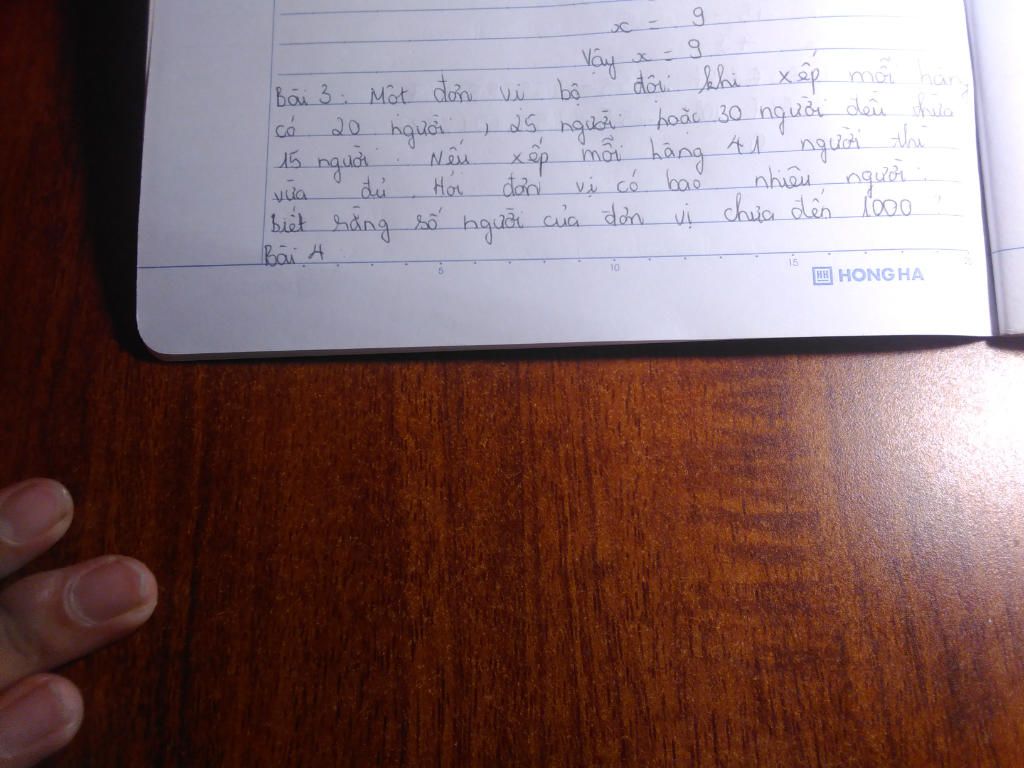 x = 9
Vậy x = 9
Bài 3 : Một đơn vị bộ đội khi xếp mỗi hàng
có 20 người , 25 người hoặc 30 người đều thừa
15 người . Nếu xếp mỗi hàng 41 người thì
vừa đủ. Hỏi đơn vị có bao nhiêu người .
Biết rằng số người của đơn vị chưa đến 1000 !
Bài 4
5 10 15
HH HONG HA